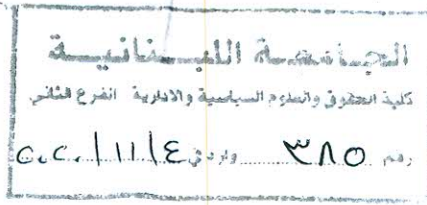 الجامعة اللبنانية
كلية الحقوق والعلوم السياسية والادارية الفرع الثاني
رقم ٣٨٥ وارد في ٤/١١/٢٠٢٠